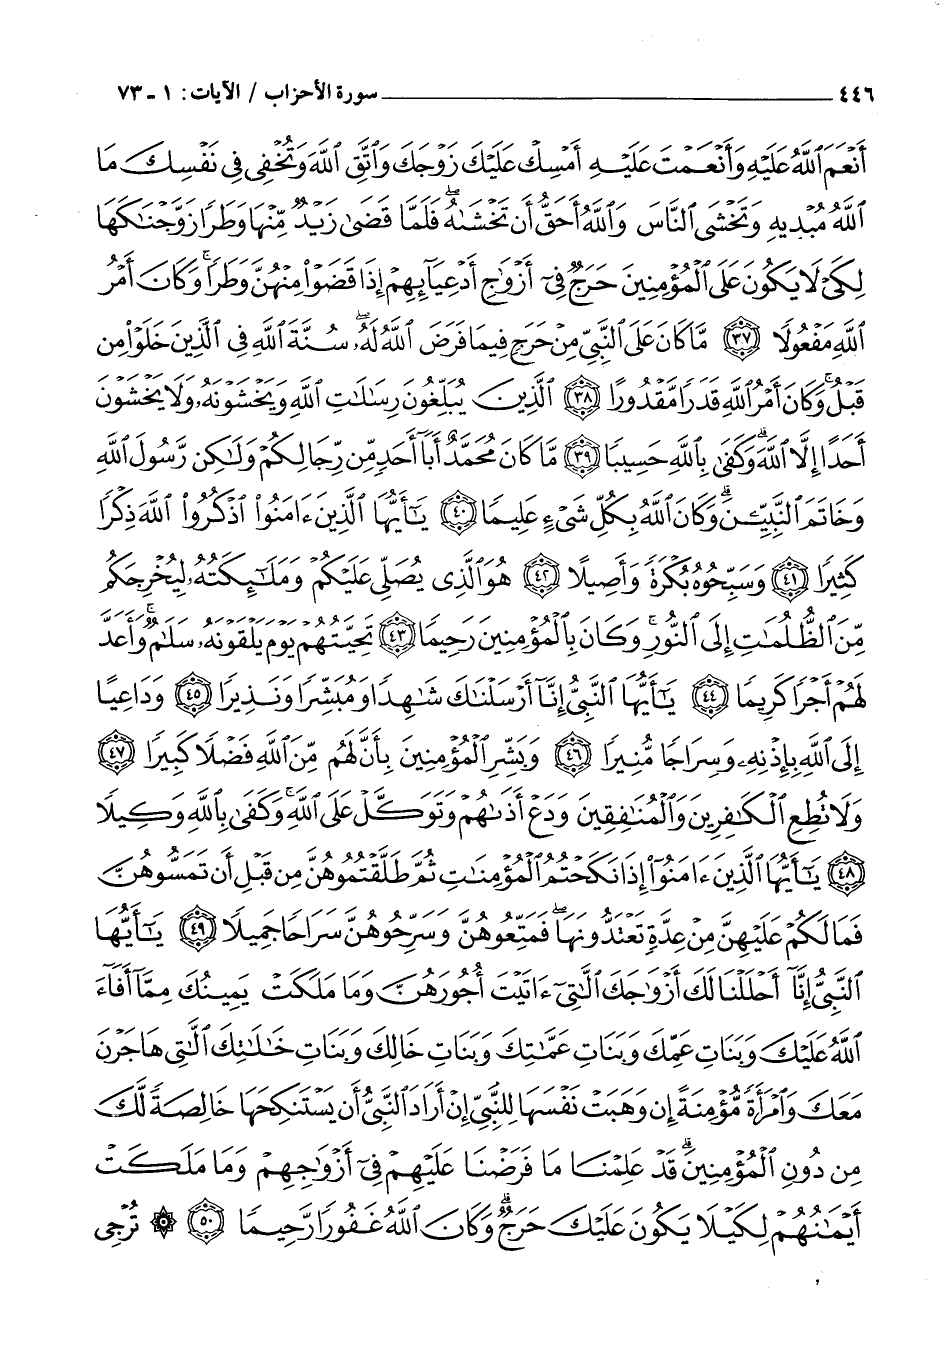 ٤٤٦ ــــــــــــــــــــ سورة الأحزاب / الآيات: ١ - ٧٣
أَنْعَمَ ٱللَّهُ عَلَيْهِ وَأَنْعَمْتَ عَلَيْهِ أَمْسِكْ عَلَيْكَ زَوْجَكَ وَٱتَّقِ ٱللَّهَ وَتُخْفِى فِى نَفْسِكَ مَا
ٱللَّهُ مُبْدِيهِ وَتَخْشَى ٱلنَّاسَ وَٱللَّهُ أَحَقُّ أَن تَخْشَىٰهُ ۖ فَلَمَّا قَضَىٰ زَيْدٌ مِّنْهَا وَطَرًا زَوَّجْنَٰكَهَا
لِكَىْ لَا يَكُونَ عَلَى ٱلْمُؤْمِنِينَ حَرَجٌ فِىٓ أَزْوَٰجِ أَدْعِيَآئِهِمْ إِذَا قَضَوْا۟ مِنْهُنَّ وَطَرًا ۚ وَكَانَ أَمْرُ
ٱللَّهِ مَفْعُولًا ﴿٣٧﴾ مَّا كَانَ عَلَى ٱلنَّبِىِّ مِنْ حَرَجٍ فِيمَا فَرَضَ ٱللَّهُ لَهُۥ ۖ سُنَّةَ ٱللَّهِ فِى ٱلَّذِينَ خَلَوْا۟ مِن
قَبْلُ ۚ وَكَانَ أَمْرُ ٱللَّهِ قَدَرًا مَّقْدُورًا ﴿٣٨﴾ ٱلَّذِينَ يُبَلِّغُونَ رِسَٰلَٰتِ ٱللَّهِ وَيَخْشَوْنَهُۥ وَلَا يَخْشَوْنَ
أَحَدًا إِلَّا ٱللَّهَ ۗ وَكَفَىٰ بِٱللَّهِ حَسِيبًا ﴿٣٩﴾ مَّا كَانَ مُحَمَّدٌ أَبَآ أَحَدٍ مِّن رِّجَالِكُمْ وَلَٰكِن رَّسُولَ ٱللَّهِ
وَخَاتَمَ ٱلنَّبِيِّۦنَ ۗ وَكَانَ ٱللَّهُ بِكُلِّ شَىْءٍ عَلِيمًا ﴿٤٠﴾ يَٰٓأَيُّهَا ٱلَّذِينَ ءَامَنُوا۟ ٱذْكُرُوا۟ ٱللَّهَ ذِكْرًا
كَثِيرًا ﴿٤١﴾ وَسَبِّحُوهُ بُكْرَةً وَأَصِيلًا ﴿٤٢﴾ هُوَ ٱلَّذِى يُصَلِّى عَلَيْكُمْ وَمَلَٰٓئِكَتُهُۥ لِيُخْرِجَكُم
مِّنَ ٱلظُّلُمَٰتِ إِلَى ٱلنُّورِ ۚ وَكَانَ بِٱلْمُؤْمِنِينَ رَحِيمًا ﴿٤٣﴾ تَحِيَّتُهُمْ يَوْمَ يَلْقَوْنَهُۥ سَلَٰمٌ ۚ وَأَعَدَّ
لَهُمْ أَجْرًا كَرِيمًا ﴿٤٤﴾ يَٰٓأَيُّهَا ٱلنَّبِىُّ إِنَّآ أَرْسَلْنَٰكَ شَٰهِدًا وَمُبَشِّرًا وَنَذِيرًا ﴿٤٥﴾ وَدَاعِيًا
إِلَى ٱللَّهِ بِإِذْنِهِۦ وَسِرَاجًا مُّنِيرًا ﴿٤٦﴾ وَبَشِّرِ ٱلْمُؤْمِنِينَ بِأَنَّ لَهُم مِّنَ ٱللَّهِ فَضْلًا كَبِيرًا ﴿٤٧﴾
وَلَا تُطِعِ ٱلْكَٰفِرِينَ وَٱلْمُنَٰفِقِينَ وَدَعْ أَذَىٰهُمْ وَتَوَكَّلْ عَلَى ٱللَّهِ ۚ وَكَفَىٰ بِٱللَّهِ وَكِيلًا
﴿٤٨﴾ يَٰٓأَيُّهَا ٱلَّذِينَ ءَامَنُوٓا۟ إِذَا نَكَحْتُمُ ٱلْمُؤْمِنَٰتِ ثُمَّ طَلَّقْتُمُوهُنَّ مِن قَبْلِ أَن تَمَسُّوهُنَّ
فَمَا لَكُمْ عَلَيْهِنَّ مِنْ عِدَّةٍ تَعْتَدُّونَهَا ۖ فَمَتِّعُوهُنَّ وَسَرِّحُوهُنَّ سَرَاحًا جَمِيلًا ﴿٤٩﴾ يَٰٓأَيُّهَا
ٱلنَّبِىُّ إِنَّآ أَحْلَلْنَا لَكَ أَزْوَٰجَكَ ٱلَّٰتِىٓ ءَاتَيْتَ أُجُورَهُنَّ وَمَا مَلَكَتْ يَمِينُكَ مِمَّآ أَفَآءَ
ٱللَّهُ عَلَيْكَ وَبَنَاتِ عَمِّكَ وَبَنَاتِ عَمَّٰتِكَ وَبَنَاتِ خَالِكَ وَبَنَاتِ خَٰلَٰتِكَ ٱلَّٰتِى هَاجَرْنَ
مَعَكَ وَٱمْرَأَةً مُّؤْمِنَةً إِن وَهَبَتْ نَفْسَهَا لِلنَّبِىِّ إِنْ أَرَادَ ٱلنَّبِىُّ أَن يَسْتَنكِحَهَا خَالِصَةً لَّكَ
مِن دُونِ ٱلْمُؤْمِنِينَ ۗ قَدْ عَلِمْنَا مَا فَرَضْنَا عَلَيْهِمْ فِىٓ أَزْوَٰجِهِمْ وَمَا مَلَكَتْ
أَيْمَٰنُهُمْ لِكَيْلَا يَكُونَ عَلَيْكَ حَرَجٌ ۗ وَكَانَ ٱللَّهُ غَفُورًا رَّحِيمًا ﴿٥٠﴾ ۞ تُرْجِى